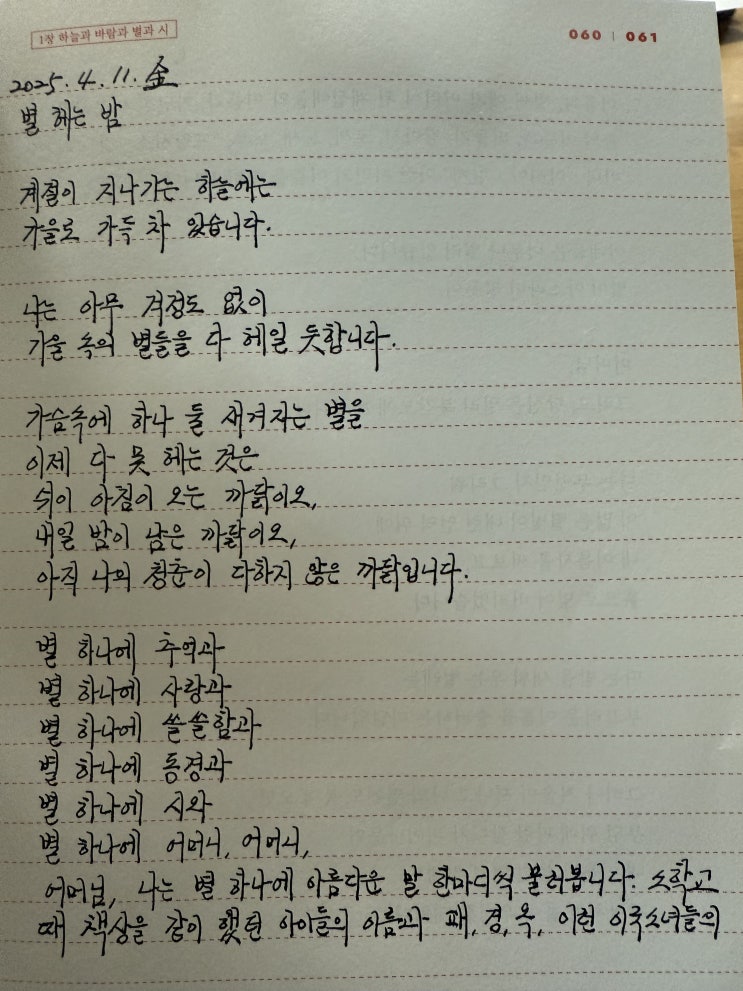 1장 하늘과 바람과 별과 시
060 | 061
2025. 4. 11. 金
별 헤는 밤
계절이 지나가는 하늘에는
가을로 가득 차 있습니다.
나는 아무 걱정도 없이
가을 속의 별들을 다 헤일 듯합니다.
가슴속에 하나 둘 새겨지는 별을
이제 다 못 헤는 것은
쉬이 아침이 오는 까닭이오,
내일 밤이 남은 까닭이오,
아직 나의 청춘이 다하지 않은 까닭입니다.
별 하나에 추억과
별 하나에 사랑과
별 하나에 쓸쓸함과
별 하나에 동경과
별 하나에 시와
별 하나에 어머니, 어머니,
어머님, 나는 별 하나에 아름다운 말 한마디씩 불러봅니다. 소학교
때 책상을 같이 했던 아이들의 이름과 패, 경, 옥, 이런 이국소녀들의